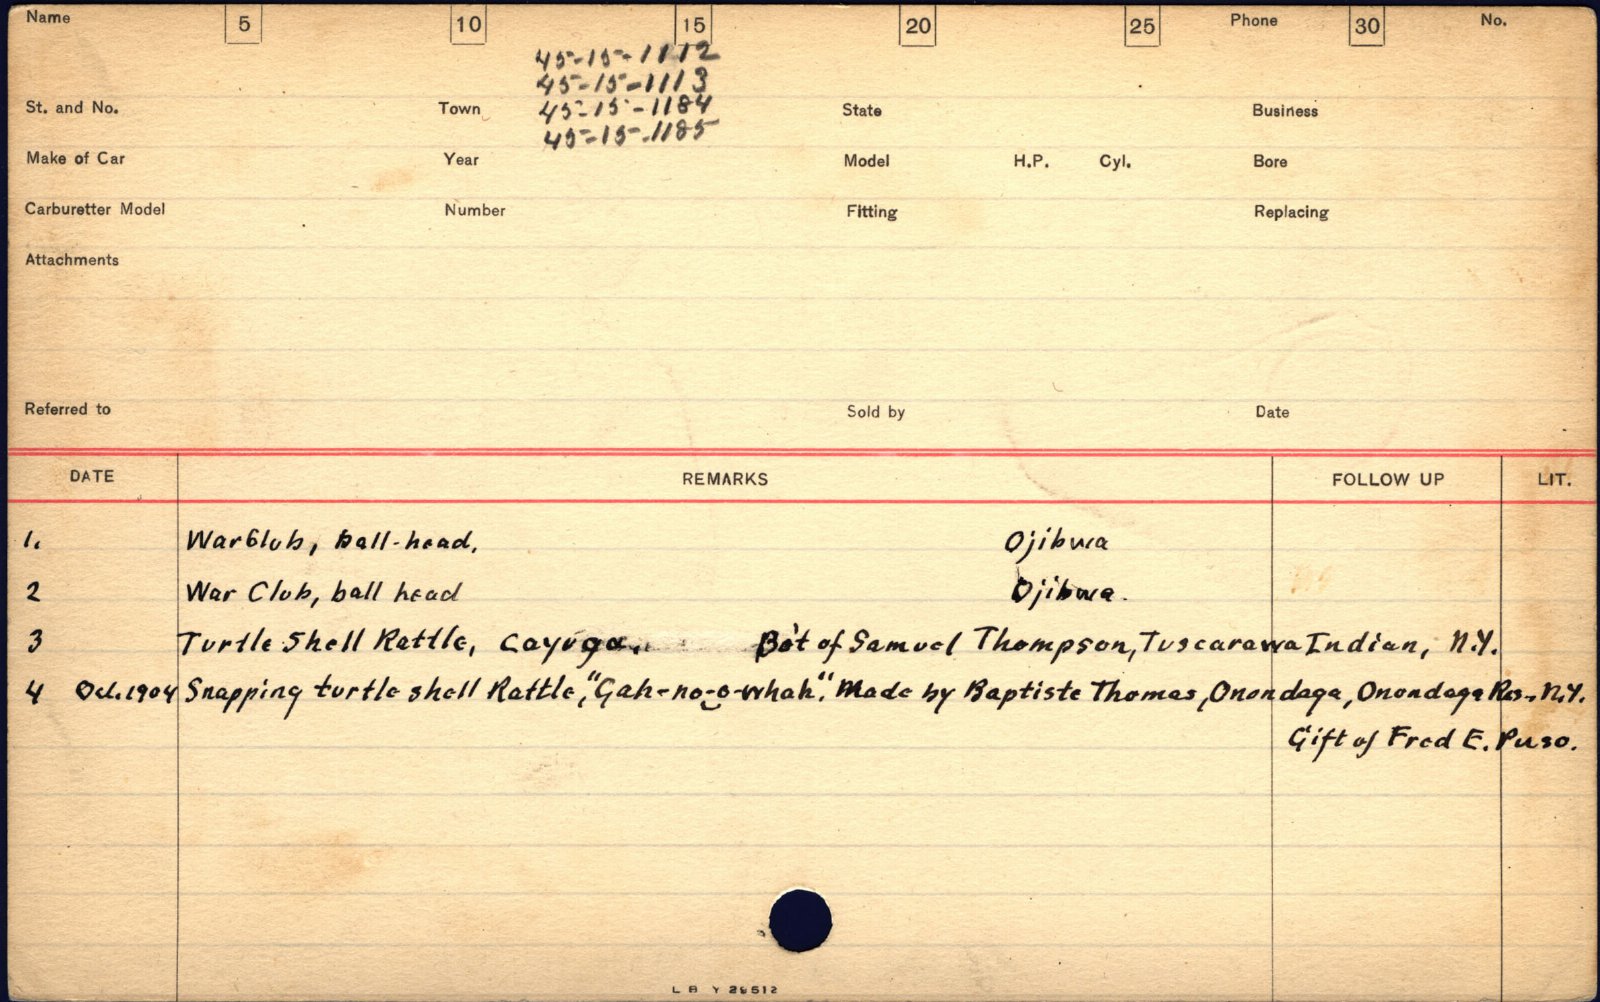 Name 5 10 15 20 25 Phone 30 No.
45-15-1112
45-15-1113
St. and No. Town 45-15-1184 State Business
45-15-1185
Make of Car Year Model H.P. Cyl. Bore
Carburetter Model Number Fitting Replacing
Attachments
Referred to Sold by Date
DATE REMARKS FOLLOW UP LIT.
1. War Club, ball-head, Ojibwa
2 War Club, ball head Ojibwa.
3 Turtle Shell Rattle, Cayuga. Bo't of Samuel Thompson, Tuscarawa Indian, N.Y.
4 Oct. 1904 Snapping turtle shell Rattle, "Gah-no-o-whah". Made by Baptiste Thomas, Onondaga, Onondaga Res., N.Y.
Gift of Fred E. Puso.
L B Y 28512